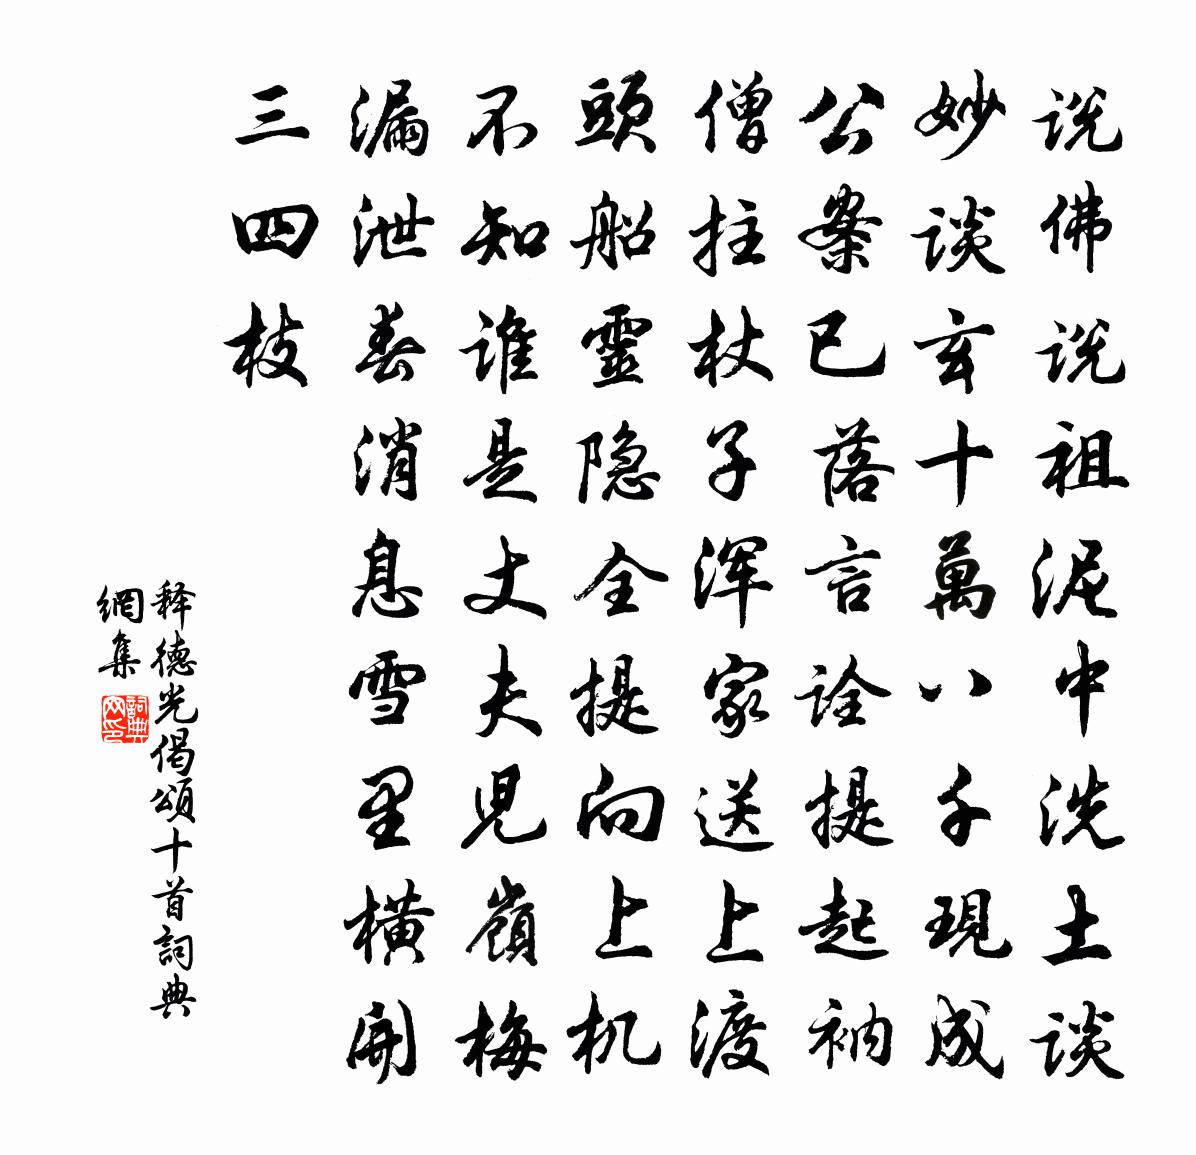 说佛说祖泥中洗土谈
妙谈玄十萬八千現成
公案已落言詮提起衲
僧拄杖子渾家送上渡
頭船靈隐全提向上机
不知谁是丈夫児嶺梅
漏泄春消息雪里横開
三四枝
释德光偈頌十首詞典
網集
詞典
网印